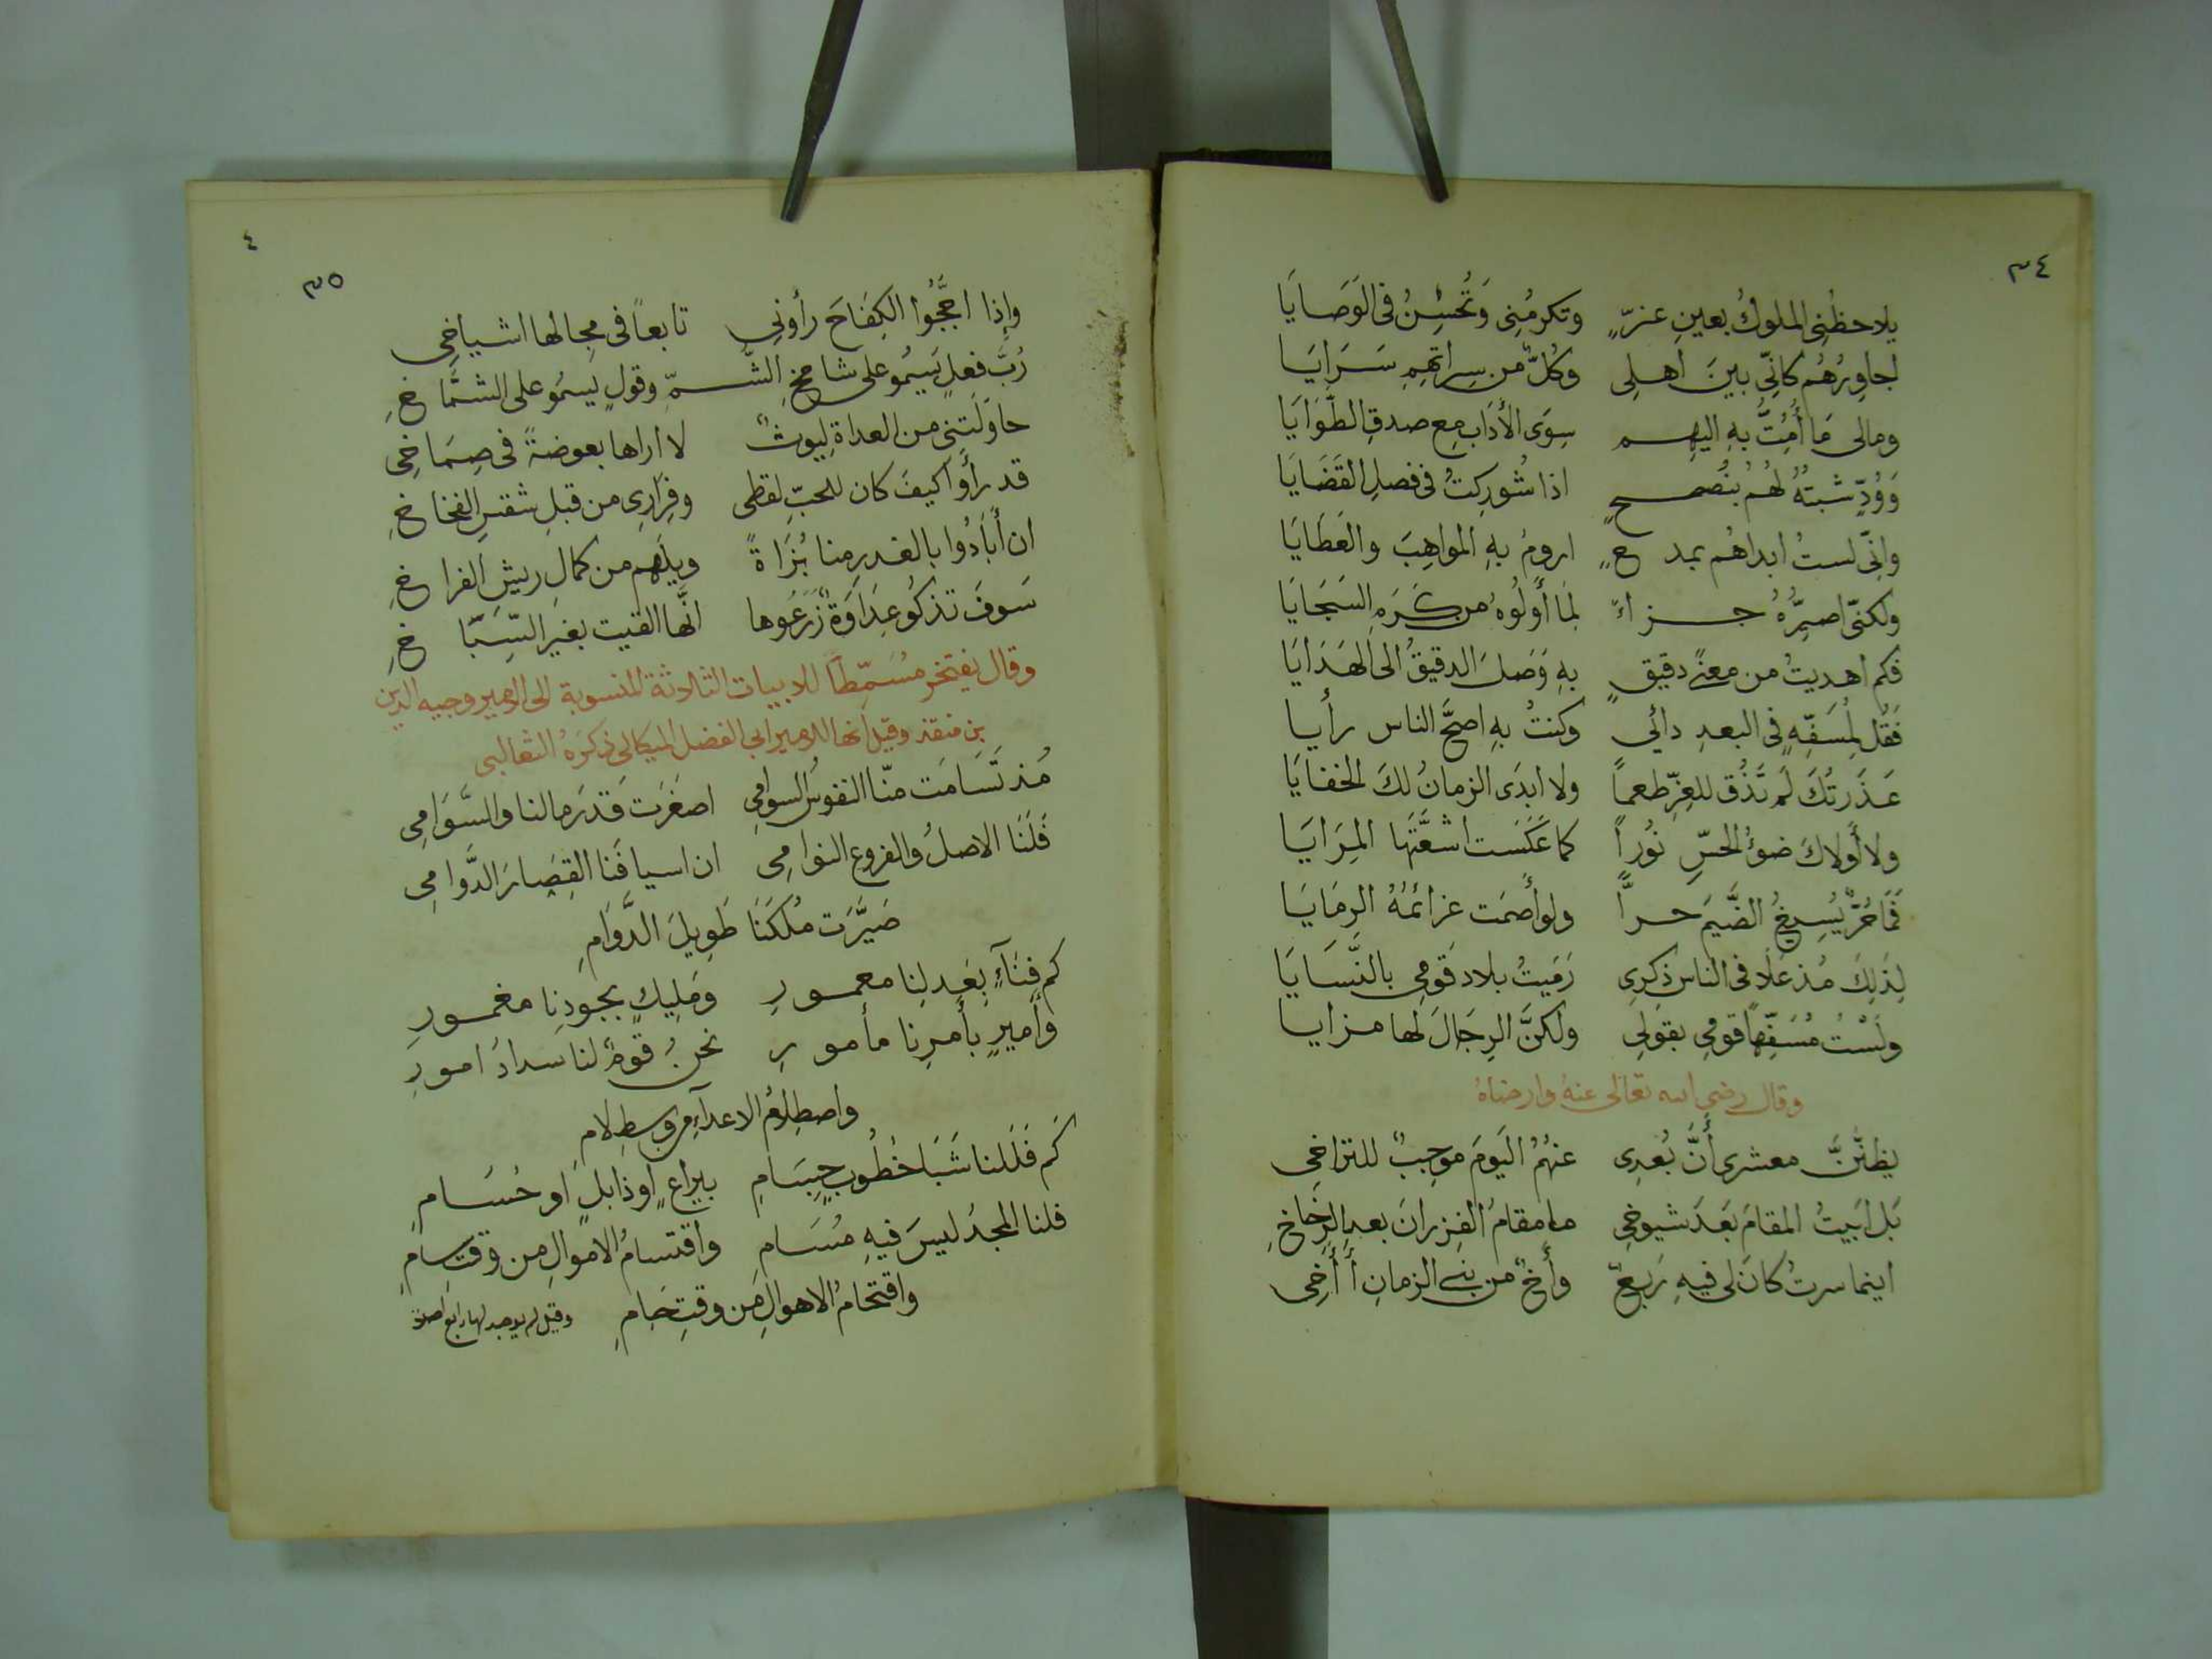 ٣٤
يلاحظُنِى الملوكُ بعينِ عزٍّ وتكرمُنِى وَتُحسِنُ فى الوَصَايَا
اجاوِرُهُم كانّى بينَ اهلِى وكُلٌّ من سِراتهِمِ سَرَايَا
ومالى مَا أَمُتُّ بهِ اليهِم سِوَى الأدَابِ مع صدقِ الطَّوَايَا
وَوُدٍّ شبتُهُ لهُم بنُصحٍ اذا شُورِكتُ فى فصلِ القَضَايَا
وانّى لستُ ابداهُم بمدحٍ ارومُ بهِ المواهِبَ والعَطَايَا
ولكنّى اصيّرُهُ جزاءً لمَا أَولَوهُ من كَرَمِ السَجَايَا
فكم اهديتُ من معنًى دقيقٍ بهِ وَصَلَ الدقيقُ الى الهَدَايَا
فَقُل لمُسَفّهٍ فى البعدِ رائي وكنتُ بهِ اصحَّ الناس رأيا
عَذَرتُكَ لَم تَذُق للعِزِّ طعماً ولا ابدَى الزمانُ لكَ الخفايَا
ولا أَولاكَ ضوءُ الحسِّ نُوراً كما عَكَسَت اشعَّتَها المِرَايَا
فَمَا حُرٌّ يُسِيغُ الضَّيمَ حراً ولو أَصمَت عزائمُهُ الرمَايَا
لِذَلِكَ مُذ عَلَا فى الناس ذِكرِى رَمَيتُ بلاد قَومِى بالنَّسَايَا
ولَسْتُ مُسَفِّهاً قومى بقَولِى ولكنَّ الرِجَالَ لها مزايا
وقال رضي الله تعالى عنهُ وارضاهُ
يظنّنَّ معشرى أَنَّ بُعدِى عنهُمُ اليَومَ موجِبٌ للتراخِى
بَل ابَيتُ المقامَ بَعَدَ شيوخِى ما مقامُ الفِرزانَ بعدَ الرِخَاخِ
اينما سرتُ كانَ لى فيهِ رَبعٌ وأَخٌ من بنى الزمانِ أُأَخِى
٤
٣٥
وإذا اجَّجُوا الكِفَاحَ رأونِى تابعاً فى مجالها اشياخِى
رُبَّ فعلٍ يَسمُو على شامخِ الشُّمّ وقولٍ يسمُو على الشمَّاخِ
حاوَلَتنِى من العداةِ لِيُوثٌ لا اراها بعوضةً فى صِمَاخِى
قد رأَوا كيفَ كان للحبِّ لقطى وفِرَارِى من قبلِ شقسِ الفخاخِ
ان أَبَادُوا بالغدرِ منا بُزَاةً ويلَهم من كمالِ ريشِ الفراخِ
سَوفَ تذكُو عِدَاوَةٌ زَرَعُوها انَّها القيت بغير السِّبَاخِ
وقال يفتخر مُسَمِّطاً للابيات الثلاثة المنسوبة الى الامير وجيه الدين
بن منقذ وقيل انها للامير ابى الفضل الميكالى ذكرَهُ الثعالبى
مُذ تَسَامَت منّا النفوسُ السوامِى اصغرَت قَدرَ مالنا والسَّوَامِى
فَلَنَا الاصلُ والفروع النوامِى ان اسيافَنا القِصَارَ الدَّوَامِى
صَيَّرَت مُلكَنَا طَوِيلَ الدَّوَامِ
كم فِنَآءٍ بعَدلِنا معمورِ ومَلِيكٍ بجودِنا مغمورِ
وأَميرٍ بأَمرِنا مأمورِ نحنُ قومٌ لنا سدادُ امورِ
واصطِلامُ الاعدآءِ من وسطِ لامِ
كَم فَلَلنا شَبَا خُطُوبٍ جِسَامِ بيراعٍ او ذابلٍ او حُسَامِ
فلنا المجدُ ليسَ فيهِ مُسَامِ واقتسامُ الاموالِ من وقتِ سامِ
واقتحامُ الاهوالِ مَن وقتِ حَامِ
وقيل لم يوجد لها رابع اصلا